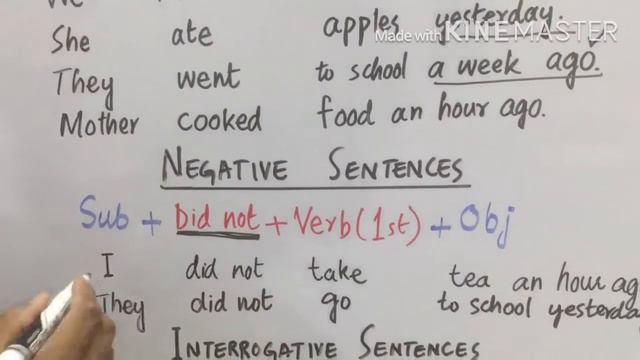 Made with KINEMASTER
She ate apples yesterday.
They went to school a week ago.
Mother cooked food an hour ago.
NEGATIVE SENTENCES
Sub + Did not + Verb (1st) + Obj
I did not take tea an hour ag
They did not go to school yesterda
INTERROGATIVE SENTENCES